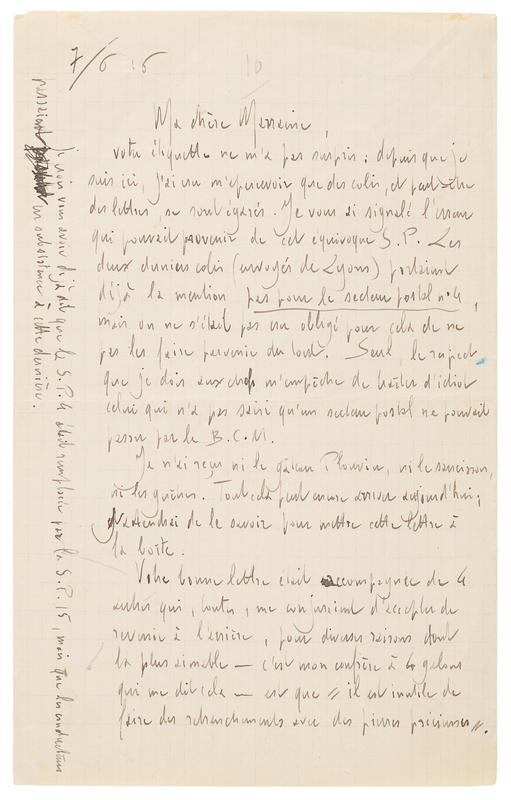 7/6 15
10
Ma chère Marraine,
votre étiquette ne m'a pas surpris : depuis que je
suis ici, j'ai cru m'apercevoir que des colis, et peut-être
des lettres, se sont égarés. Je vous ai signalé l'erreur
qui pouvait provenir de cet équivoque S. P. Les
deux derniers colis (envoyés de Lyons) portaient
déjà la mention pas pour le secteur postal n° 4,
mais on ne s'était pas cru obligé pour cela de ne
pas les faire parvenir du tout. Seul, le respect
que je dois aux chefs m'empêche de traiter d'idiot
celui qui n'a pas saisi qu'un secteur postal ne pouvait
passer par le B. C. M.
Je n'ai reçu ni le gâteau Plouvin, ni le saucisson,
ni les guêtres. Tout cela peut encore arriver aujourd'hui ;
j'attendrai de le savoir pour mettre cette lettre à
la boîte.
Votre bonne lettre était accompagnée de 4
autres qui, toutes, me conjuraient d'accepter de
revenir à l'arrière, pour diverses raisons dont
la plus aimable — c'est mon confrère à 4 galons
qui me dit cela — est que " il est inutile de
faire des retranchements avec des pierres précieuses ".
Je crois vous avoir déjà dit que la S. P. 4 était remplacée par la S. P. 15, mais que les conducteurs
passaient en subsistance à cette dernière.